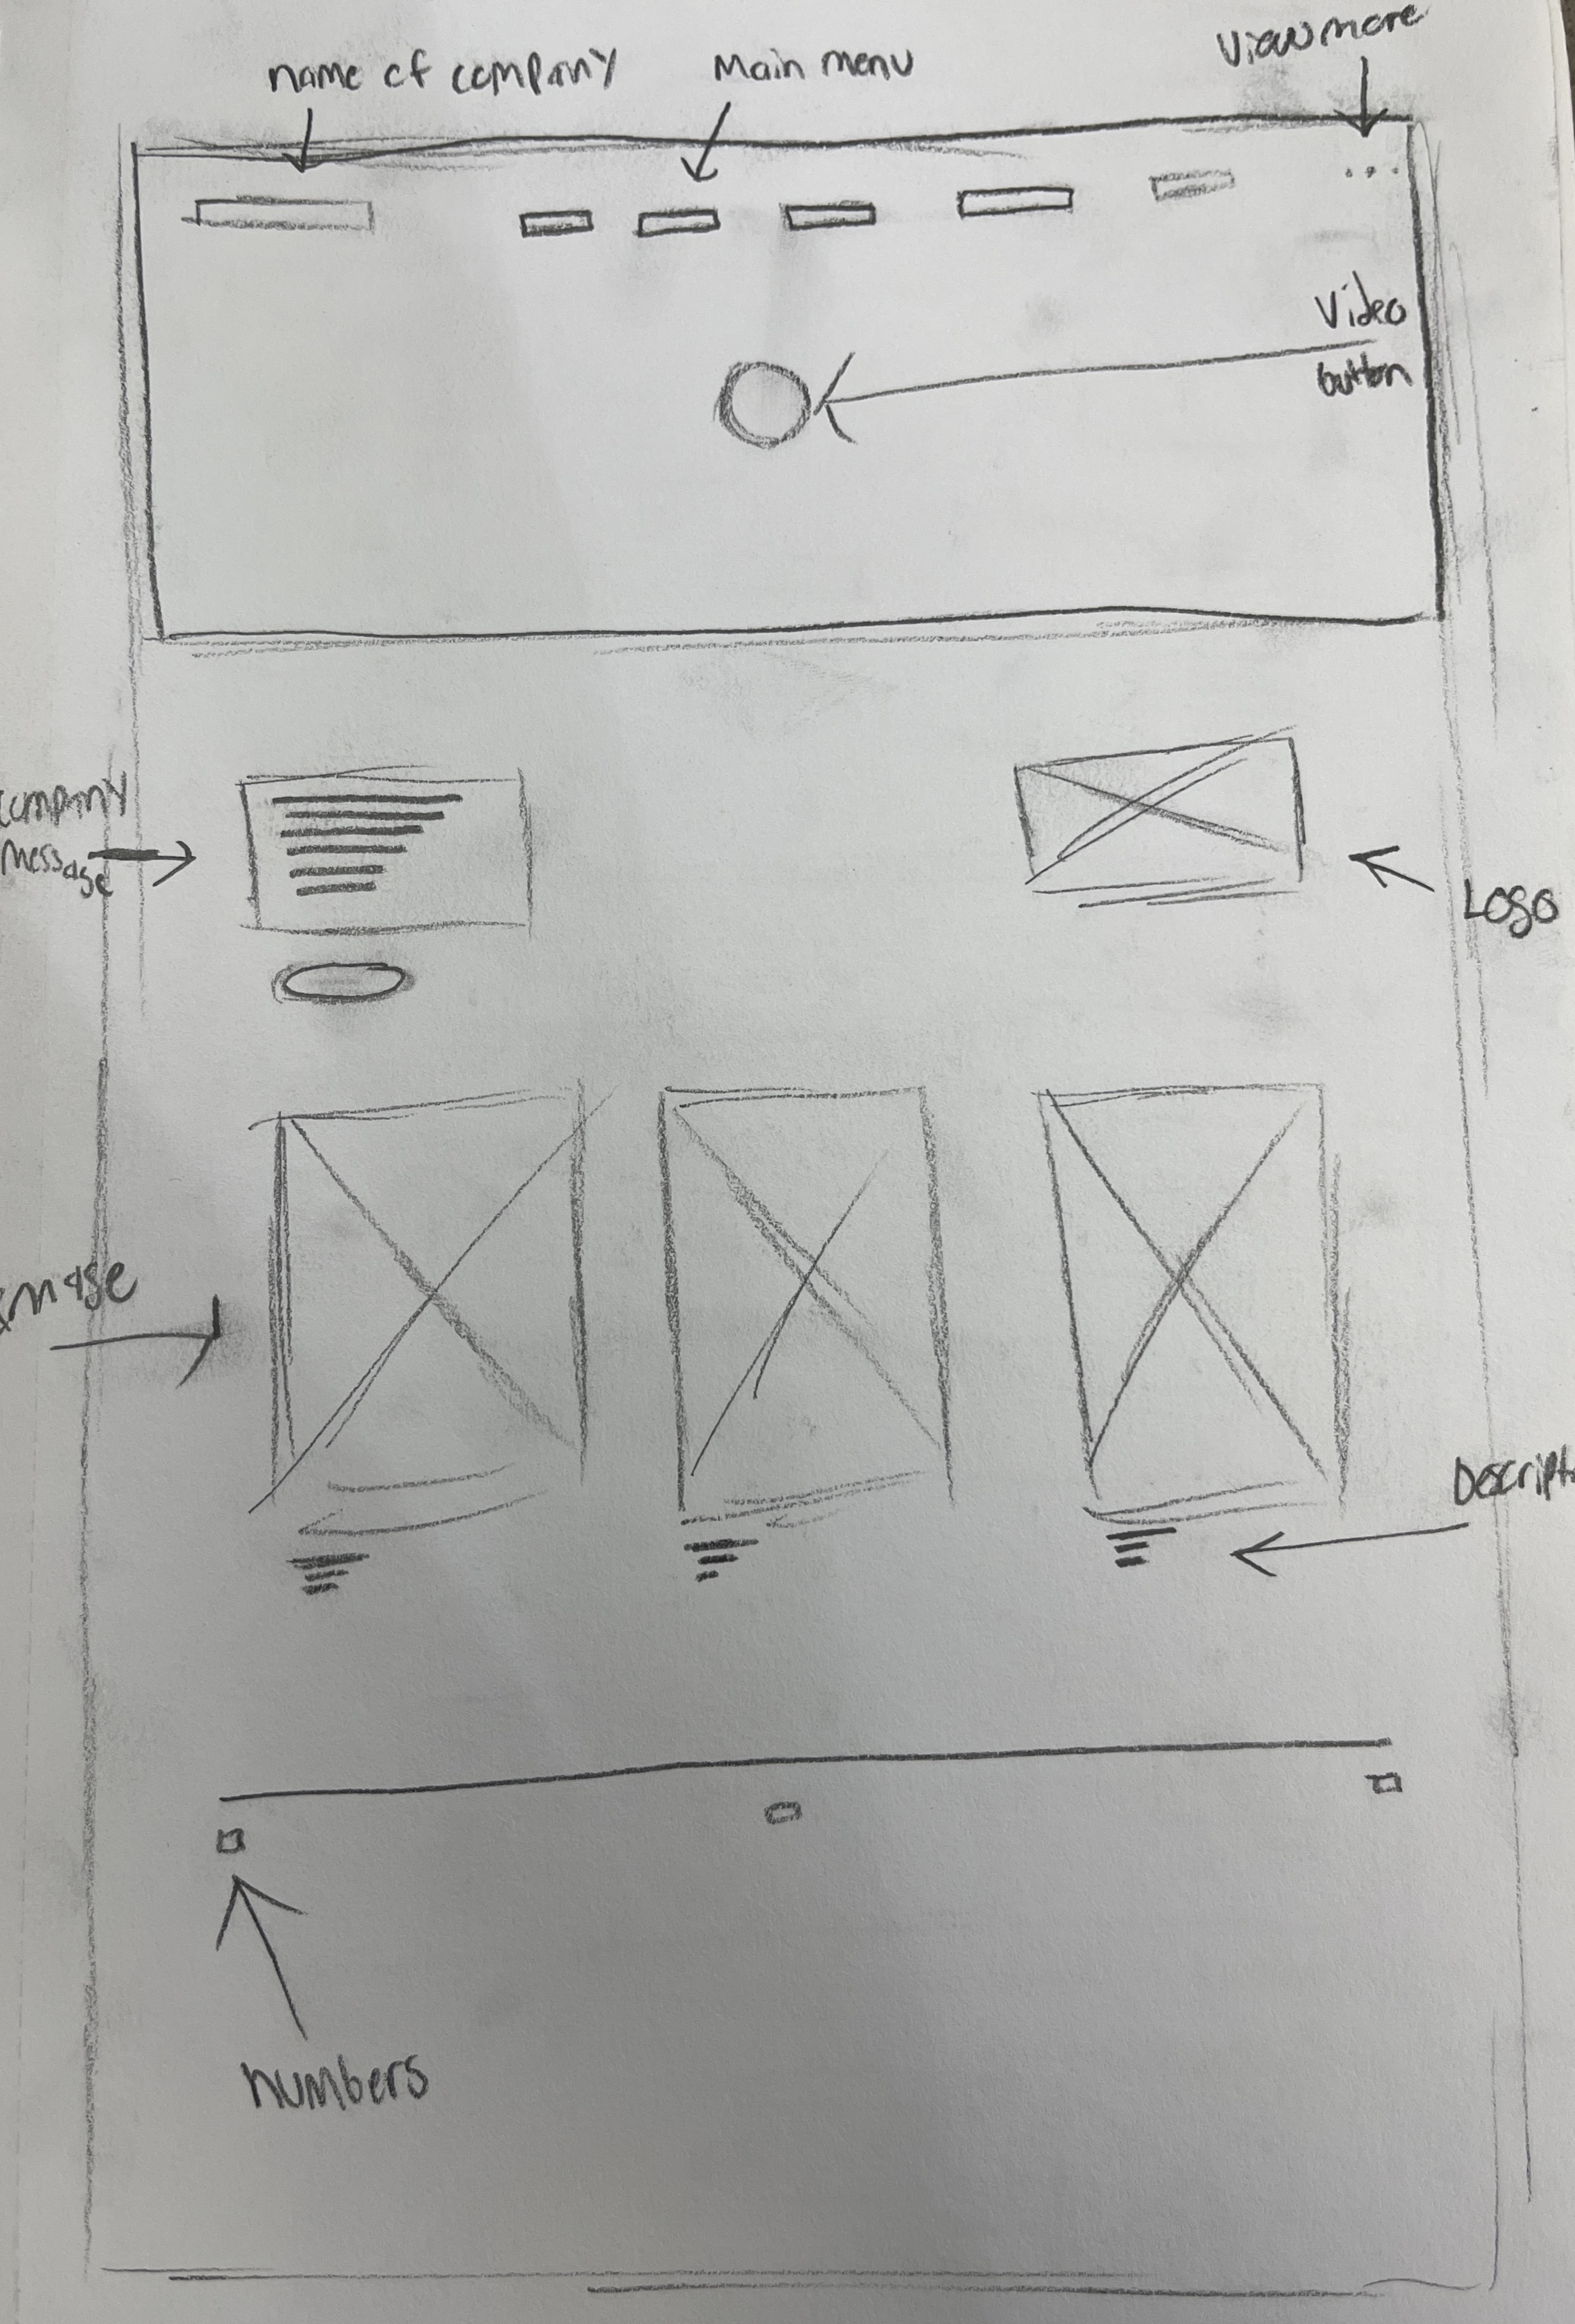 name of company
Main menu
View more
Video
button
company
message
Logo
image
Descript
numbers